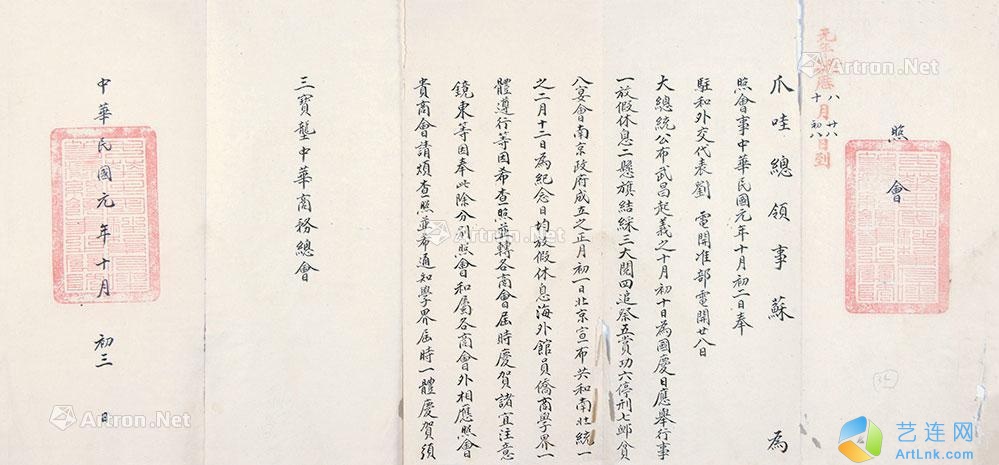 照會
元年
十月
初八日到
八
廿八
爪哇總領事蘇 為
照會事中華民國元年十月初二日奉
駐和外交代表劉 電開准部電開廿八日
大總統公布武昌起義之十月初十日為國慶日應舉行事
一放假休息二懸旗結綵三大閱四追祭五賞功六停刑七卹貧
八宴會南京政府成立之正月初一日北京宣布共和南北統一
之二月十二日為紀念日均放假休息海外館員僑商學界一
體遵行等因希查照並轉各商會屆時慶賀諸宜注意
鏡東等因奉此除分別照會和屬各商會外相應照會
貴商會請煩查照並希通知學界屆時一體慶賀須
三寶壟中華商務總會
中華民國元年十月 初三 日
Artron.Net
Artron.Net
Artron.Net
Artron.Net
Artron.Net
艺连网
ArtLnk.com